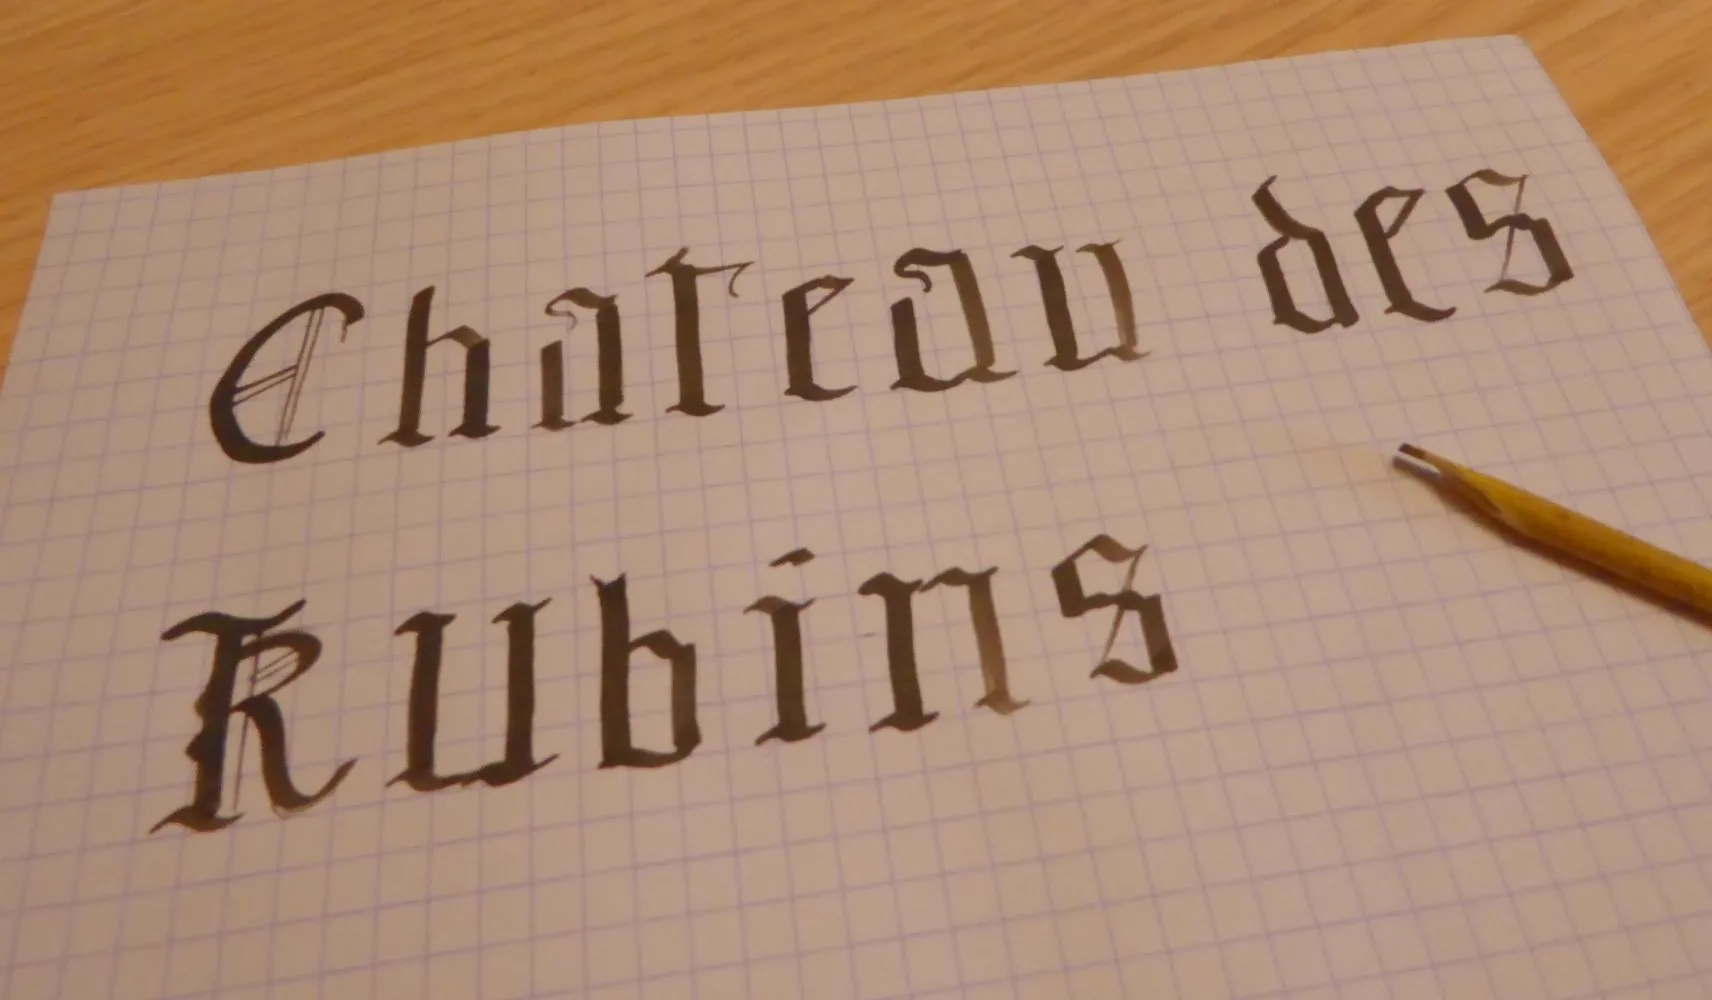 Chateau des
Rubins